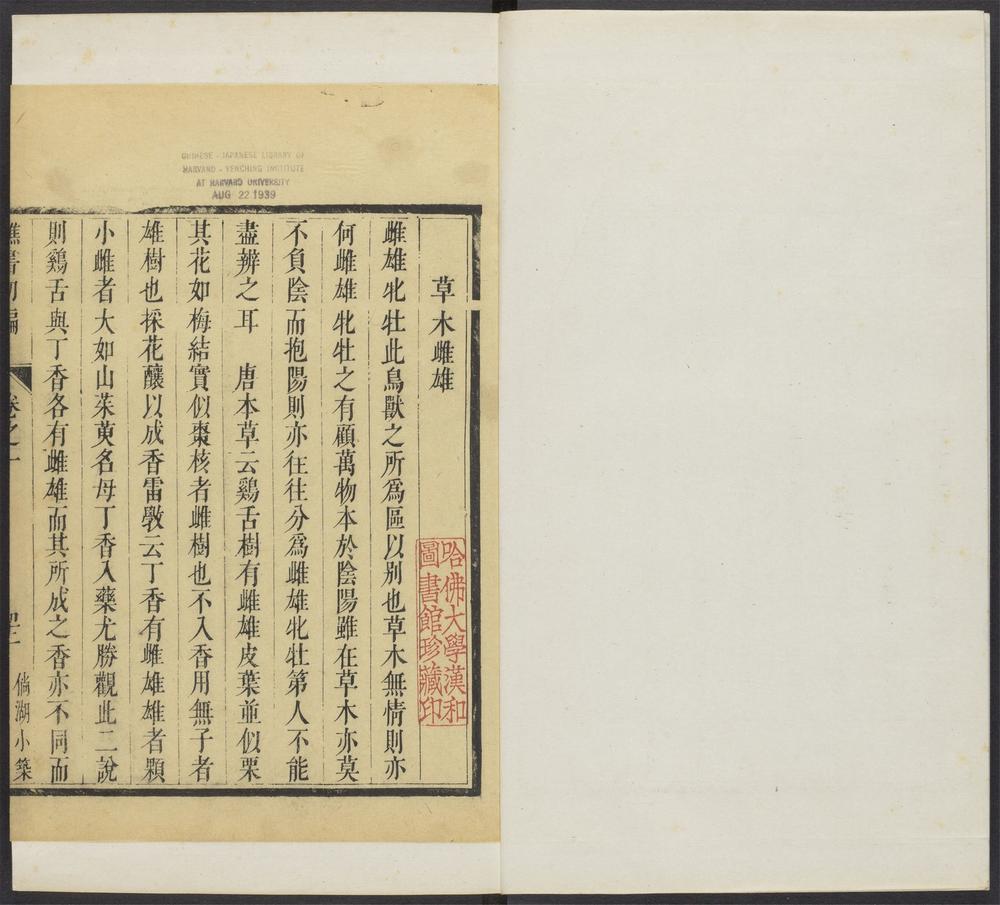 CHINESE - JAPANESE LIBRARY OF
HARVARD - YENCHING INSTITUTE
AT HARVARD UNIVERSITY
AUG 22 1939
草木雌雄
哈佛大學漢和
圖書館珍藏印
雌雄牝牡此鳥獸之所爲區以别也草木無情則亦
何雌雄牝牡之有顧萬物本於陰陽雖在草木亦莫
不負陰而抱陽則亦往往分爲雌雄牝牡第人不能
盡辨之耳　唐本草云鷄舌樹有雌雄皮葉並似栗
其花如梅結實似棗核者雌樹也不入香用無子者
雄樹也採花釀以成香雷斅云丁香有雌雄雄者顆
小雌者大如山茱萸名母丁香入藥尤勝觀此二說
則鷄舌與丁香各有雌雄而其所成之香亦不同而
樵書初編
卷之一
倘湖小築